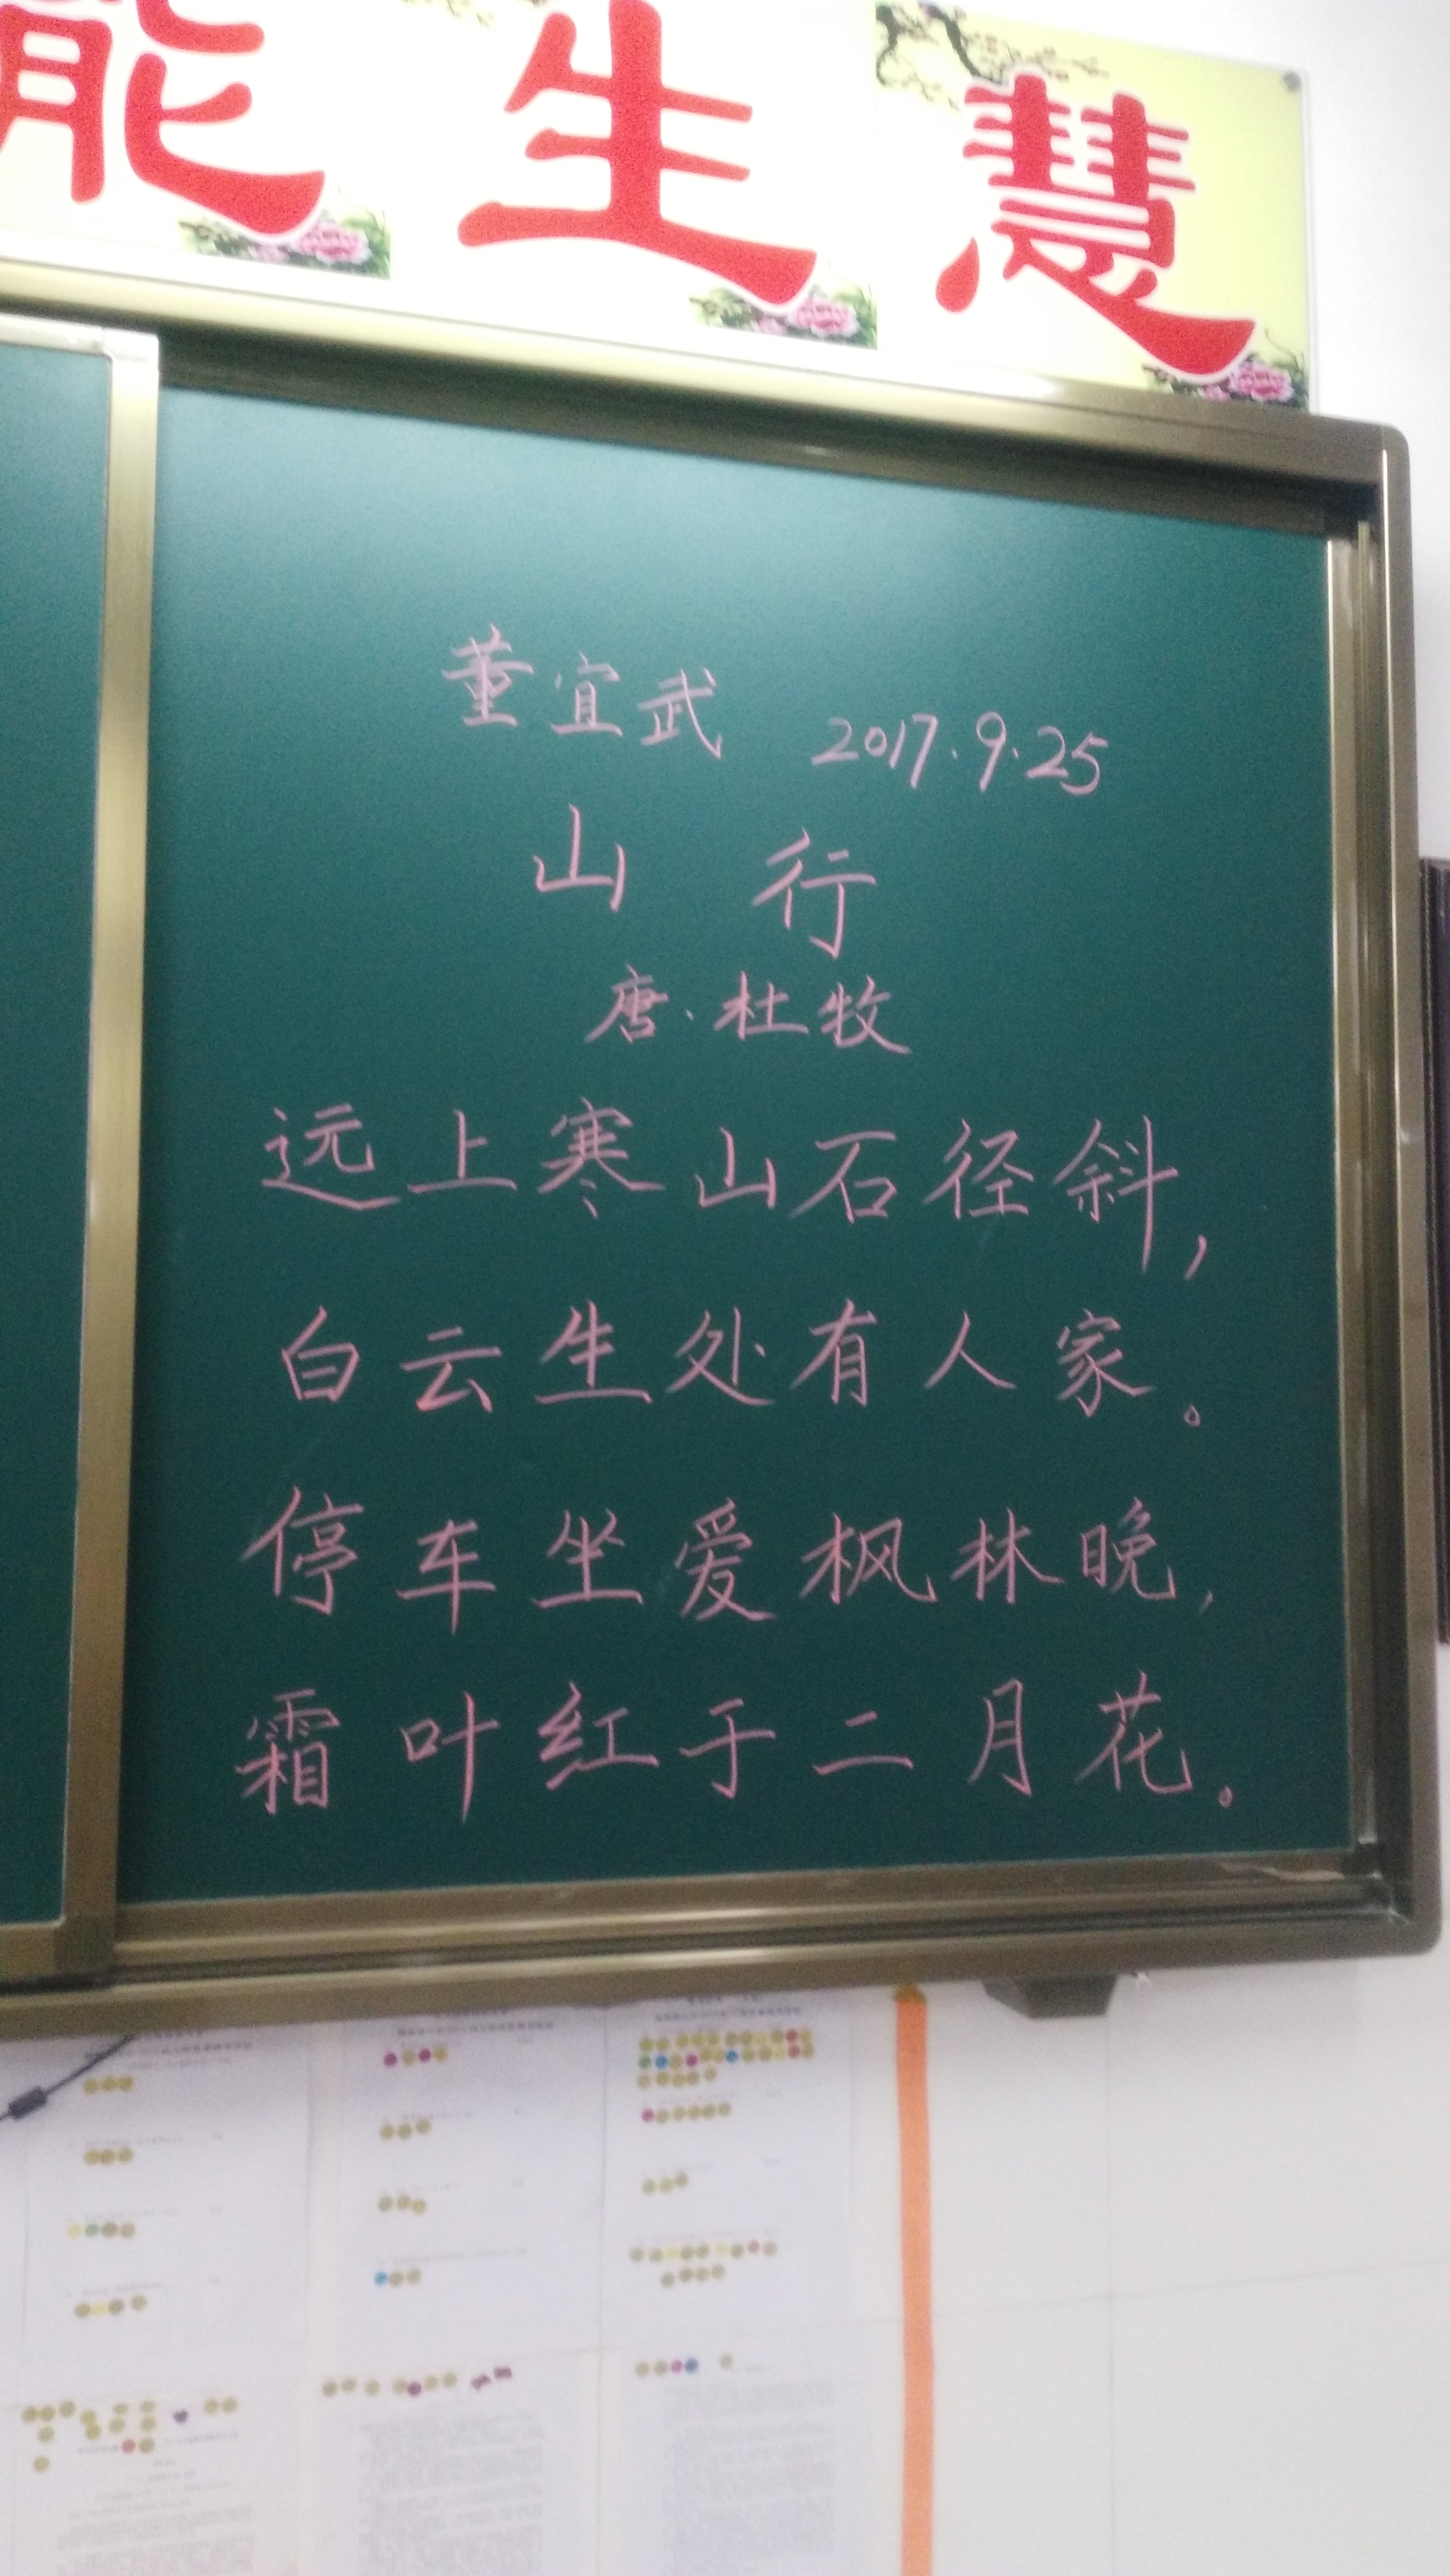 能生慧
董宜武 2017.9.25
山 行
唐·杜牧
远上寒山石径斜,
白云生处有人家。
停车坐爱枫林晚,
霜叶红于二月花。